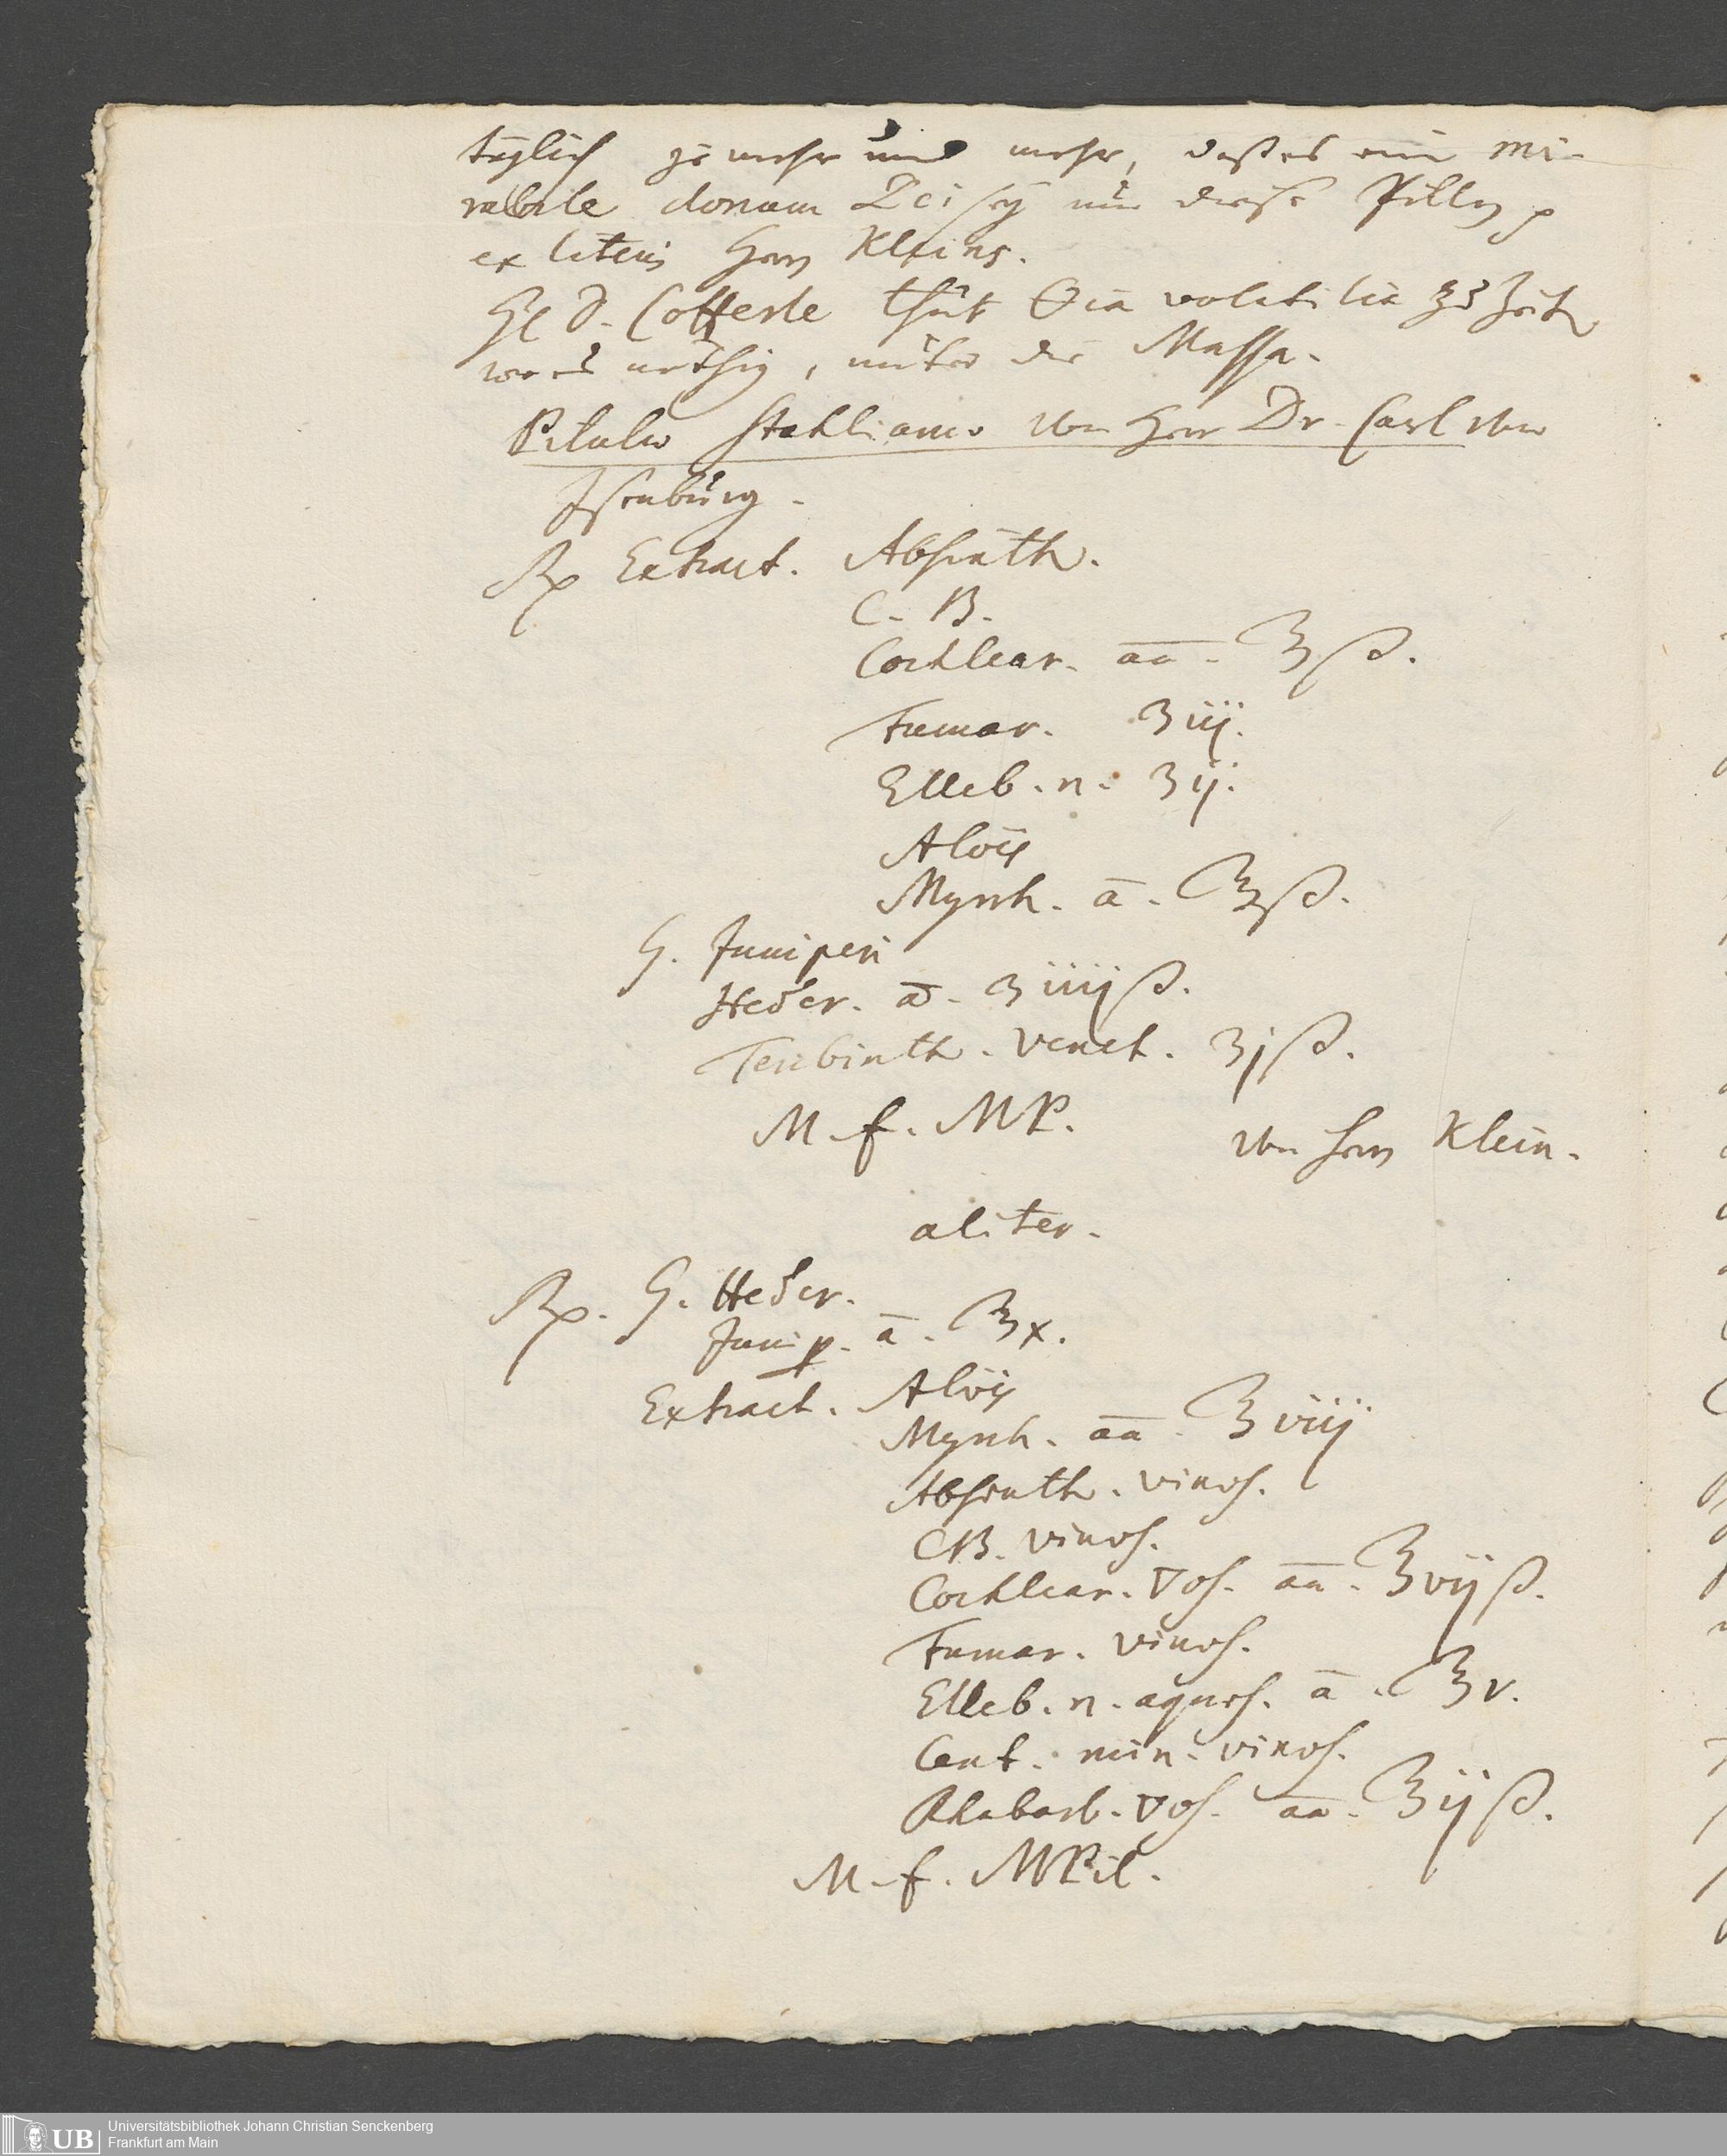 täglich je mehr und mehr, daß es ein mi-
rabile donum Dei sey um diese Pillen
ex literis Herrn Kleins.
D. Cofferle thut volatilia zu Zeiten
wo es nöthig, unter die Massa.
Pilulae Stahlianae von Herr Dr. Carl von
Isenburg.
Rp Extract. Absinth.
C. B.
Cochlear. aa. ℥ß.
Fumar. ʒiij.
Elleb. n. ʒij.
Aloës
Myrrh. a. ℥ß.
G. Juniperi
Heder. a. ʒiiijß.
Terebinth. Venet. ʒjß.
M. f. MP.
von Herrn Klein.
aliter.
Rp. G. Heder.
Junip. a. ℥x.
Extract. Aloës
Myrrh. aa. ℥viij
Absinth. vinos.
CB. vinos.
Cochlear. ▽os. aa. ℥vijß.
Fumar. vinos.
Elleb. n. aquos. a. ℥v.
Cent. min. vinos.
Rhabarb. ▽os. aa. ℥ijß.
M. f. MPil.
UB Universitätsbibliothek Johann Christian Senckenberg
Frankfurt am Main